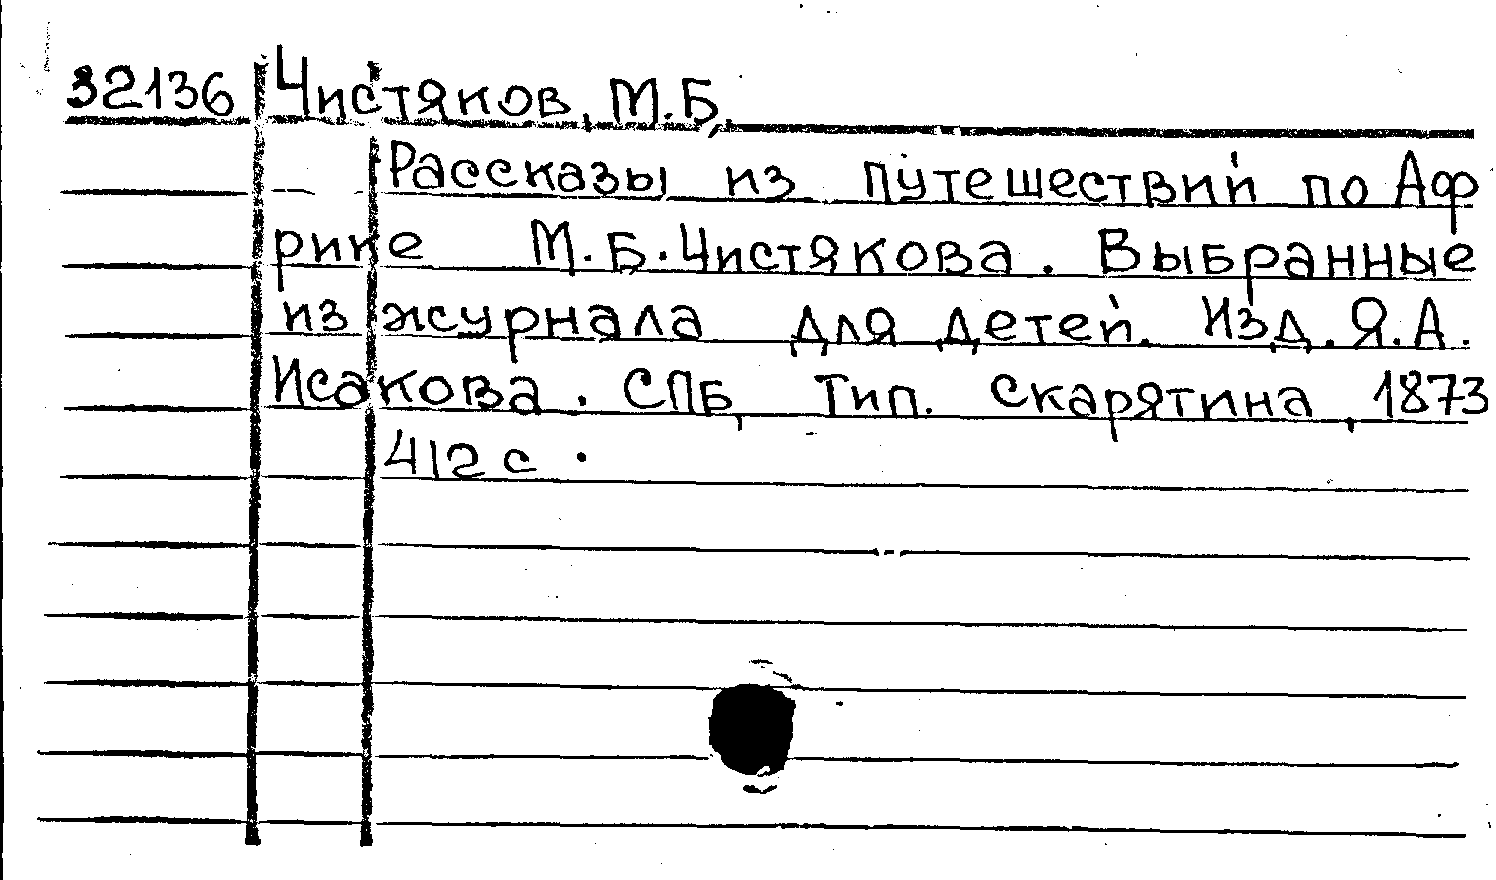 32136 Чистяков, М.Б.
Рассказы из путешествий по Аф
рике М.Б.Чистякова. Выбранные
из журнала для детей. Изд. Я.А.
Исакова. СПБ, Тип. Скарятина, 1873
412 с.